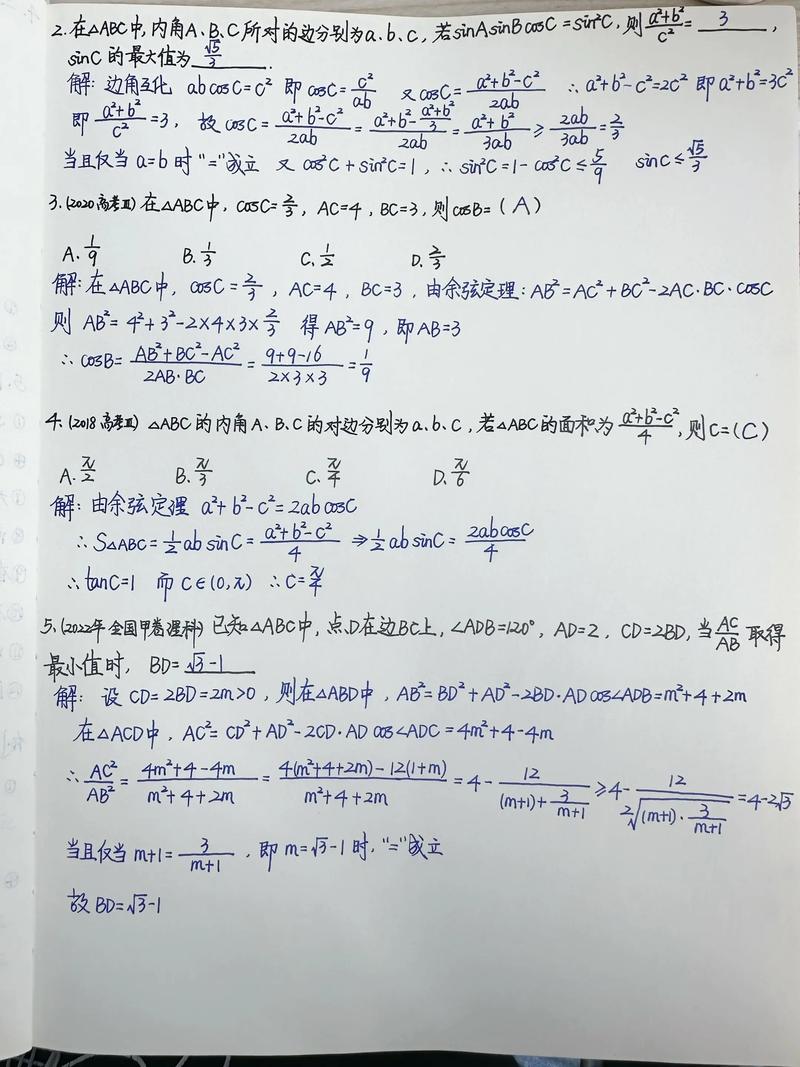 2. 在△ABC中, 内角A、B、C所对的边分别为a、b、c, 若sinAsinBcosC=sin²C, 则\frac{a²+b²}{c²}=3,
sinC的最大值为\frac{√5}{3}.
解: 边角互化 abcosC=c² 即cosC=\frac{c²}{ab} 又cosC=\frac{a²+b²-c²}{2ab} ∴a²+b²-c²=2c² 即a²+b²=3c²
即\frac{a²+b²}{c²}=3, 故cosC=\frac{a²+b²-c²}{2ab}=\frac{a²+b²-\frac{a²+b²}{3}}{2ab}=\frac{a²+b²}{3ab}≥\frac{2ab}{3ab}=\frac{2}{3}
当且仅当a=b时"="成立 又cos²C+sin²C=1, ∴sin²C=1-cos²C≤\frac{5}{9} sinC≤\frac{√5}{3}
3. (2020高考Ⅲ) 在△ABC中, cosC=\frac{2}{3}, AC=4, BC=3, 则cosB=(A)
A. \frac{1}{9} B. \frac{1}{3} C. \frac{1}{2} D. \frac{2}{3}
解: 在△ABC中, cosC=\frac{2}{3}, AC=4, BC=3, 由余弦定理: AB²=AC²+BC²-2AC·BC·cosC
则 AB²=4²+3²-2×4×3×\frac{2}{3} 得AB²=9, 即AB=3
∴cosB=\frac{AB²+BC²-AC²}{2AB·BC}=\frac{9+9-16}{2×3×3}=\frac{1}{9}
4. (2018高考Ⅲ) △ABC的内角A、B、C的对边分别为a、b、c, 若△ABC的面积为\frac{a²+b²-c²}{4}, 则C=(C)
A. \frac{π}{2} B. \frac{π}{3} C. \frac{π}{4} D. \frac{π}{6}
解: 由余弦定理 a²+b²-c²=2abcosC
∴S△ABC=\frac{1}{2}absinC=\frac{a²+b²-c²}{4} ⇒\frac{1}{2}absinC=\frac{2abcosC}{4}
∴tanC=1 而C∈(0,π) ∴C=\frac{π}{4}
5. (2022年全国甲卷理科) 已知△ABC中, 点D在边BC上, ∠ADB=120°, AD=2, CD=2BD, 当\frac{AC}{AB}取得
最小值时, BD=√3-1
解: 设CD=2BD=2m>0, 则在△ABD中, AB²=BD²+AD²-2BD·ADcos∠ADB=m²+4+2m
在△ACD中, AC²=CD²+AD²-2CD·ADcos∠ADC=4m²+4-4m
∴\frac{AC²}{AB²}=\frac{4m²+4-4m}{m²+4+2m}=\frac{4(m²+4+2m)-12(1+m)}{m²+4+2m}=4-\frac{12}{(m+1)+\frac{3}{m+1}}≥4-\frac{12}{2\sqrt{(m+1)·\frac{3}{m+1}}}=4-2√3
当且仅当m+1=\frac{3}{m+1}, 即m=√3-1时, "="成立
故BD=√3-1